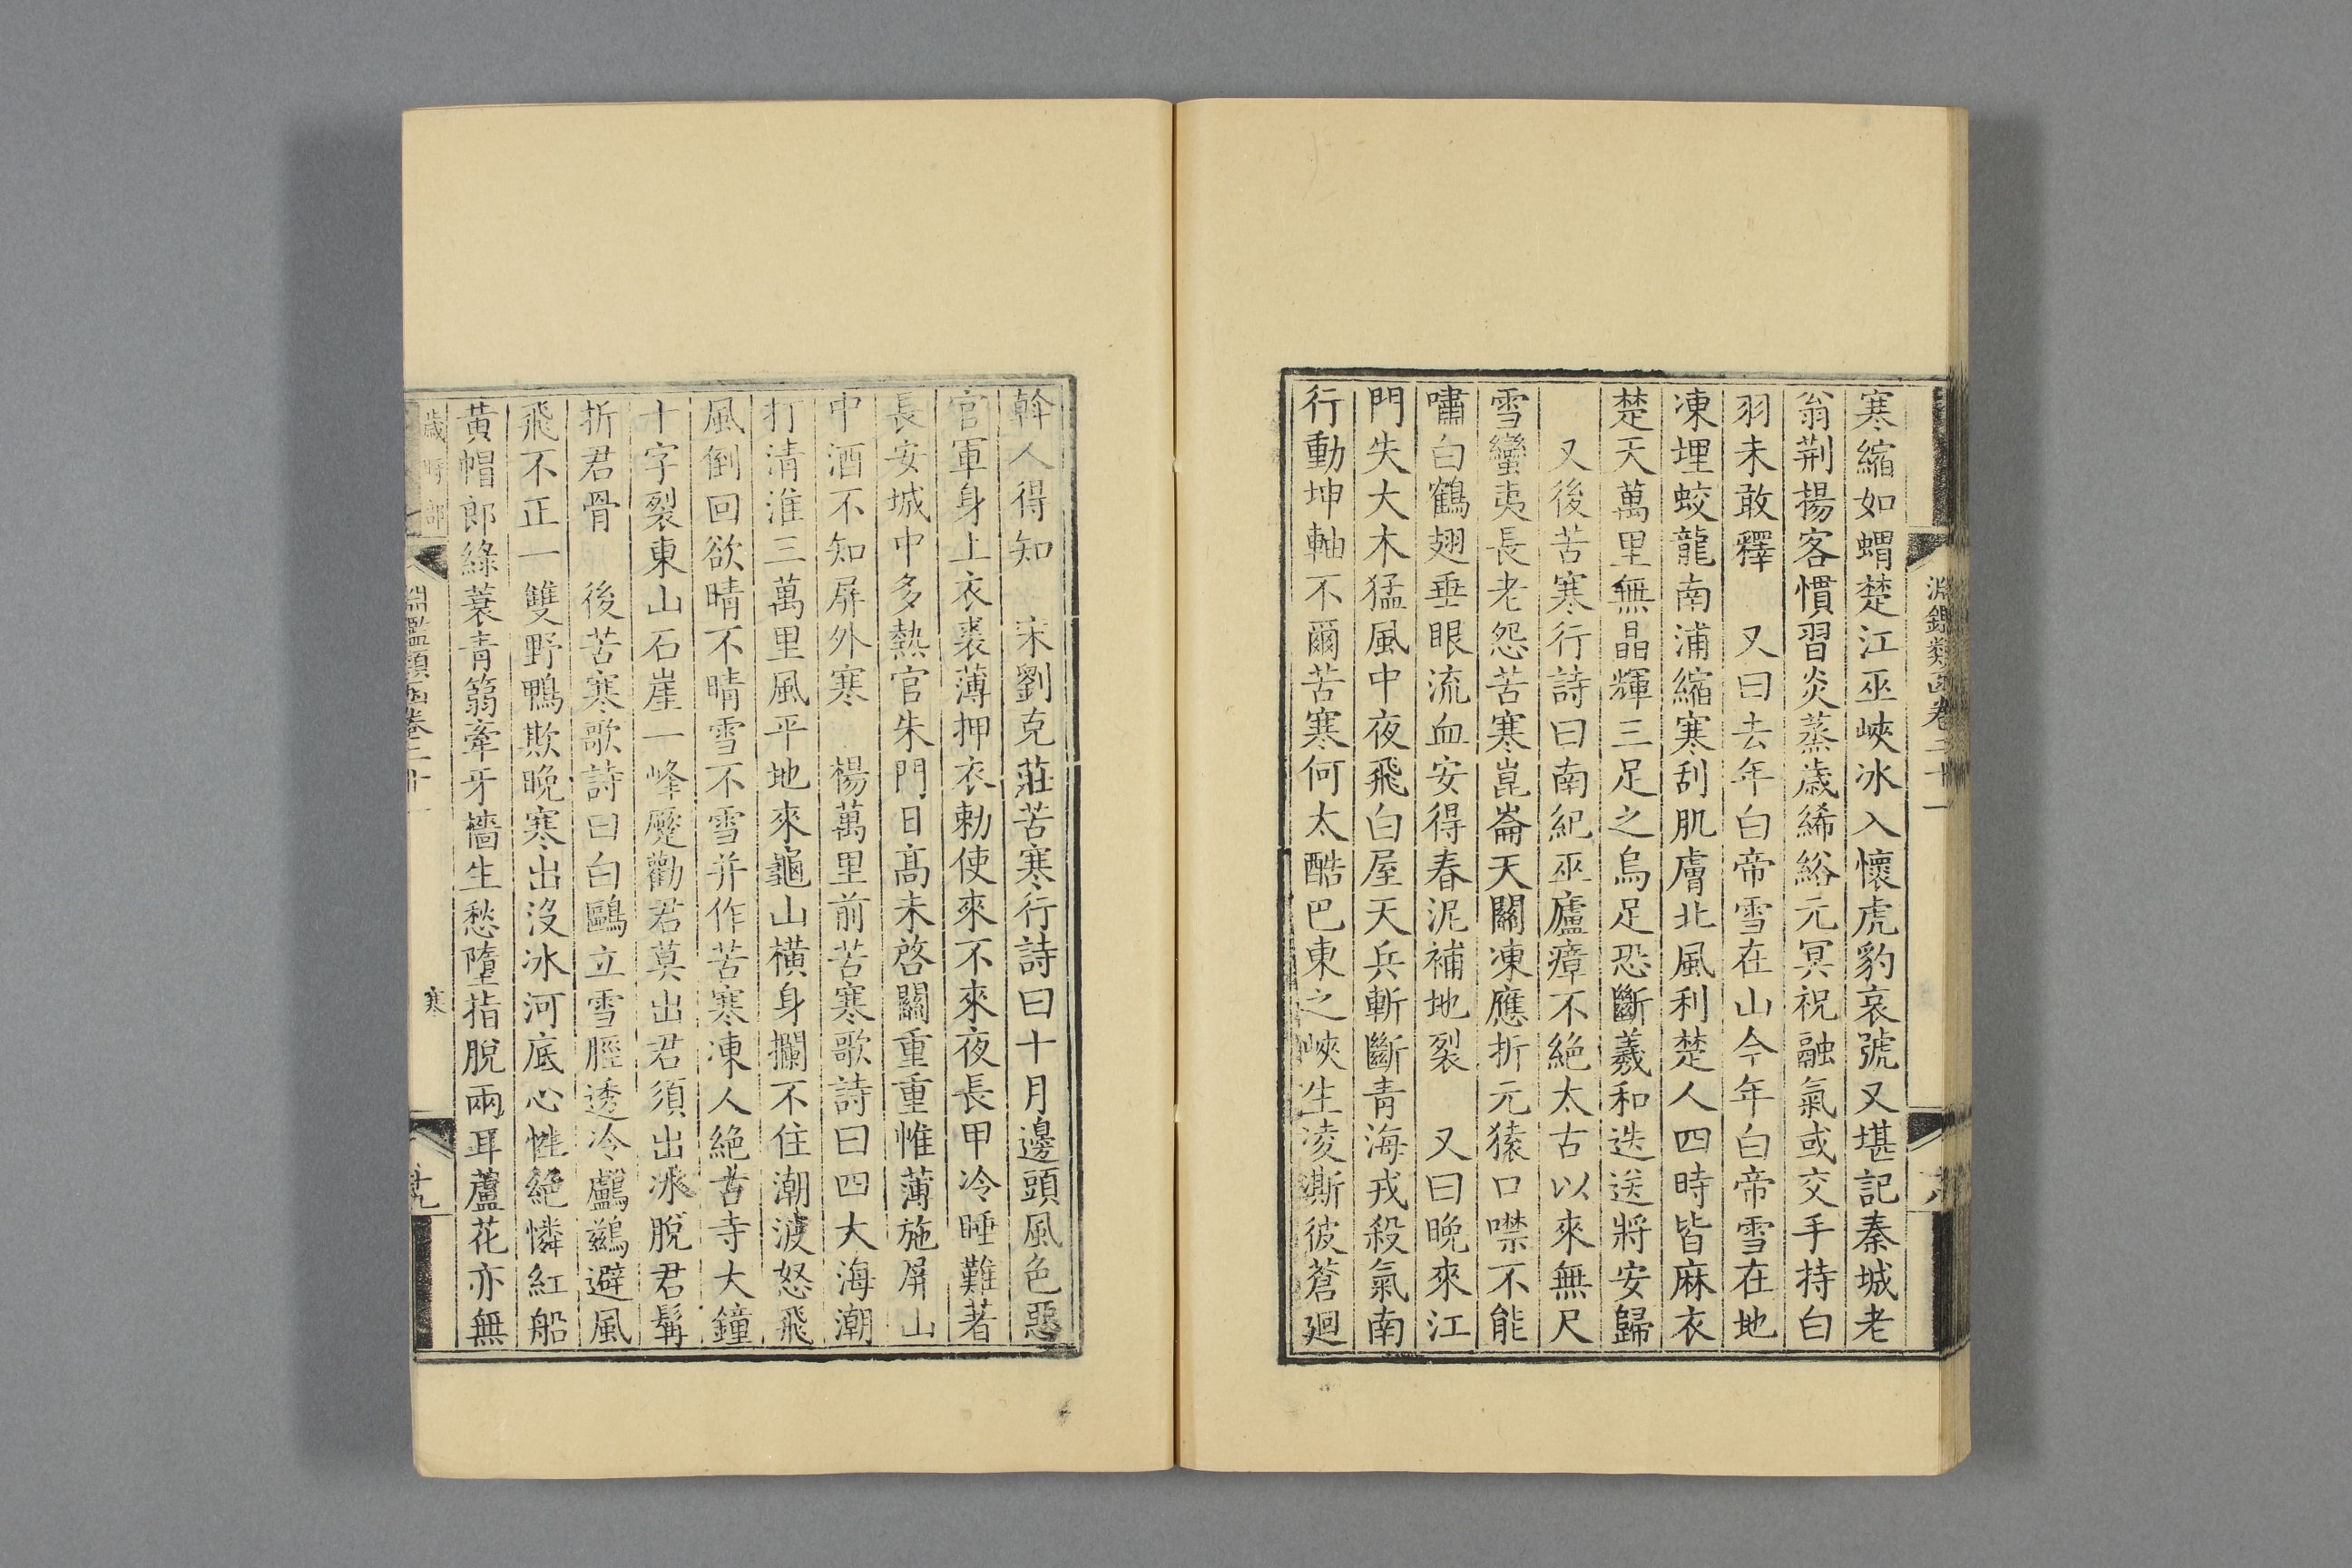 淵鑑類函卷二十一
寒縮如蝟楚江巫峽冰入懷虎豹哀號又堪記秦城老
翁荆揚客慣習炎蒸歲絺綌元冥祝融氣或交手持白
羽未敢釋　又曰去年白帝雪在山今年白帝雪在地
凍埋蛟龍南浦縮寒刮肌膚北風利楚人四時皆麻衣
楚天萬里無晶輝三足之烏足恐斷羲和迭送將安歸
又後苦寒行詩曰南紀巫廬瘴不絶太古以來無尺
雪蠻夷長老怨苦寒崑崙天關凍應折元猿口噤不能
嘯白鶴翅垂眼流血安得春泥補地裂　又曰晚來江
門失大木猛風中夜飛白屋天兵斬斷青海戎殺氣南
行動坤軸不爾苦寒何太酷巴東之峽生凌澌彼蒼廻
幹人得知　宋劉克莊苦寒行詩曰十月邊頭風色惡
官軍身上衣裘薄押衣勅使來不來夜長甲冷睡難著
長安城中多熱官朱門日高未啓關重重帷薄施屏山
中酒不知屏外寒　楊萬里前苦寒歌詩曰四大海潮
打清淮三萬里風平地來龜山橫身攔不住潮波怒飛
風倒回欲晴不晴雪不雪并作苦寒凍人絶昔寺大鐘
十字裂東山石崖一峰蹷勸君莫出君須出冰脫君髯
折君骨　後苦寒歌詩曰白鷗立雪脛透冷鸕鷀避風
飛不正一雙野鴨欺晚寒出沒冰河底心性絶憐紅船
黃帽郎綠蓑青篛牽牙檣生愁墮指脫兩耳蘆花亦無
歲時部
淵鑑類函卷二十一
寒
十九